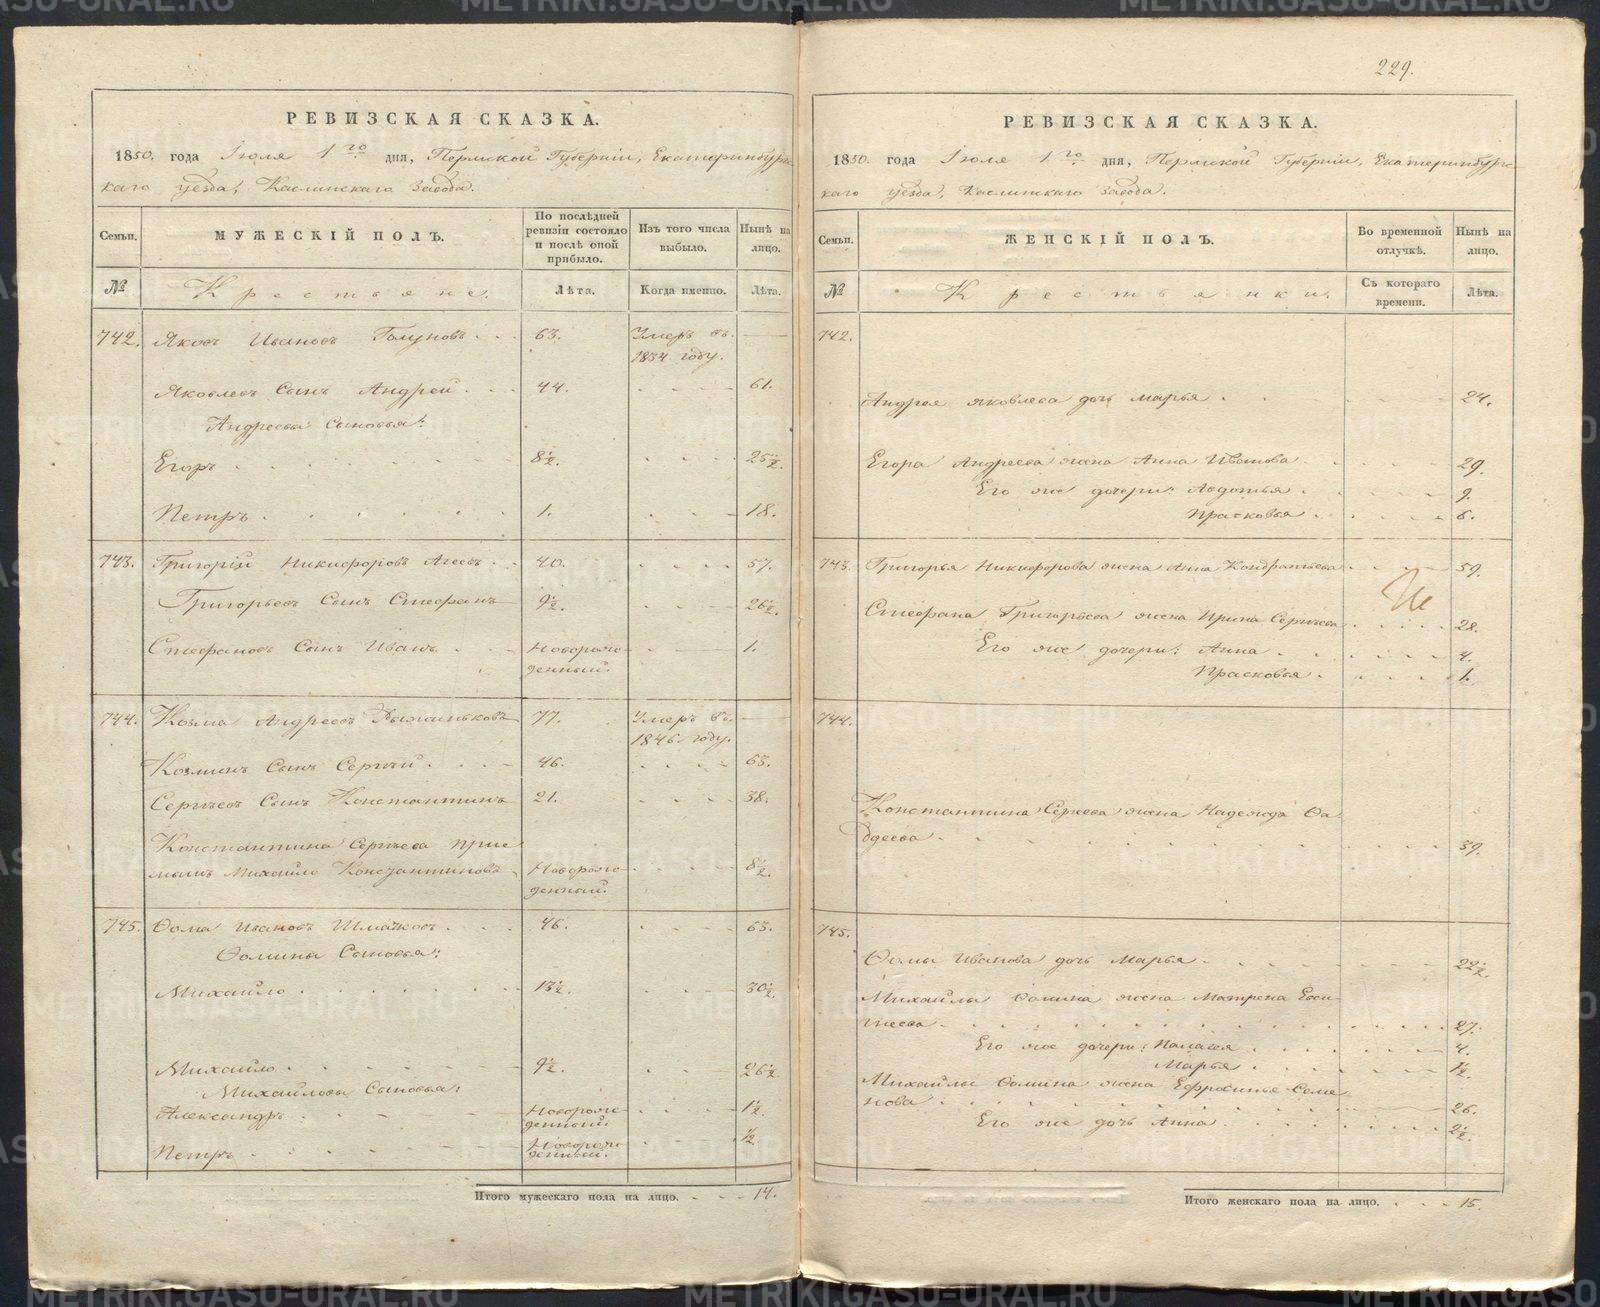 229.
РЕВИЗСКАЯ СКАЗКА.
1850. года Іюля 1го дня, Пермской Губерніи, Екатеринбург-
скаго уезда, Каслинскаго Завода.
Семьи. МУЖЕСКІЙ ПОЛЪ. По послѣдней ревизіи состояло и послѣ оной прибыло. Изъ того числа выбыло. Нынѣ на лицо.
№ Крестьяне. Лѣта. Когда именно. Лѣта.
742. Яковъ Ивановъ Голуновъ 63. Умеръ въ
1834 году.
Яковлевъ Сынъ Андрей 44. 61.
Андреевы Сыновья:
Егоръ 8½. 25½.
Петръ 1. 18.
743. Григорій Никифоровъ Агеевъ 40. 57.
Григорьевъ Сынъ Стефанъ 9½. 26½.
Стефановъ Сынъ Иванъ Новорож- 1.
денный.
744. Козма Андреевъ 77. Умеръ въ
1846 году.
Козминъ Сынъ Сергѣй 46. 63.
Сергѣевъ Сынъ Константинъ 21. 38.
Константина Сергѣева прие-
мышъ Михайло Константиновъ Новорож- 8½.
денный.
745. Ѳома Ивановъ Шмаковъ 46. 63.
Ѳомины Сыновья:
Михайло 13½. 30½.
Михайло 9½. 26½
Михайловы Сыновья:
Александръ Новорож- 1½.
денный.
Петръ Новорож- ½
денный.
Итого мужескаго пола на лицо. 14.
РЕВИЗСКАЯ СКАЗКА.
1850. года Іюля 1го дня, Пермской Губерніи, Екатеринбургс-
каго уезда, Каслинскаго Завода.
Семьи. ЖЕНСКІЙ ПОЛЪ. Во временной отлучкѣ. Нынѣ на лицо.
№ Крестьянки. Съ котораго времени. Лѣта.
742.
Андрея Яковлева дочь Марья 24.
Егора Андреева жена Анна Иванова 29.
Его же дочери: Авдотья 9.
Прасковья 6.
743. Григорья Никифорова жена Анна Кондратьева 59.
Стефана Григорьева жена Ирина Сергѣева 28.
Его же дочери: Анна 4.
Прасковья 1.
744.
Константина Сергѣева жена Надежда Ѳа-
ддеева 39.
745.
Ѳомы Иванова дочь Марья 22½.
Михайлы Ѳомина жена Матрена Евси-
гнеева 27.
Его же дочери: Палагея 4.
Марья 1½.
Михайлы Ѳомина жена Ефросинья Семе-
нова 26.
Его же дочь Анна 2½.
Итого женскаго пола на лицо. 15.
METRIKI.GASO-URAL.RU